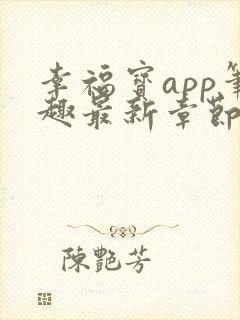 幸福寶app筆
趣最新章節
陳艷芳